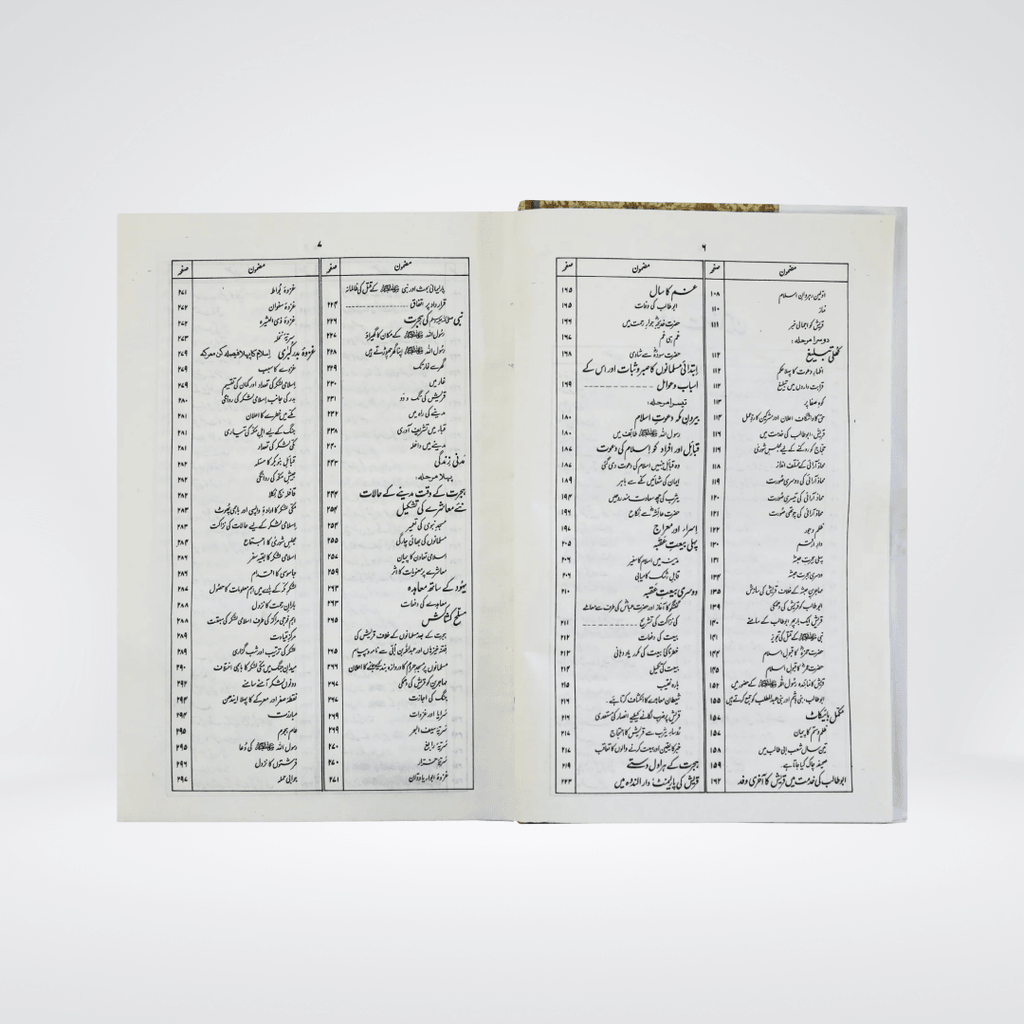 ۶
مضمون صفحہ
اوّلین رہروانِ اسلام ۱۰۸
نماز ۱۱۰
قریش کو اجمالی خبر ۱۱۱
دوسرا مرحلہ:
کھلی تبلیغ ۱۱۲
اظہارِ دعوت کا پہلا حکم ۱۱۲
قرابت داروں میں تبلیغ ۱۱۲
کوہِ صفا پر ۱۱۳
حق کا واشگاف اعلان اور مشرکین کا ردِّ عمل ۱۱۴
قریش، ابو طالب کی خدمت میں ۱۱۶
حجاج کو روکنے کے لیے مجلسِ شوریٰ ۱۱۶
محاذ آرائی کے مختلف انداز ۱۱۸
محاذ آرائی کی دوسری صورت ۱۱۹
محاذ آرائی کی تیسری صورت ۱۲۰
محاذ آرائی کی چوتھی صورت ۱۲۱
ظلم و جور ۱۲۲
دارِ ارقم ۱۳۰
پہلی ہجرتِ حبشہ ۱۳۱
دوسری ہجرتِ حبشہ ۱۳۴
مہاجرینِ حبشہ کے خلاف قریش کی سازش ۱۳۵
ابو طالب کو قریش کی دھمکی ۱۳۹
قریش ایک بار پھر ابو طالب کے سامنے ۱۴۰
نبی ﷺ کے قتل کی تجویز ۱۴۱
حضرت حمزہؓ کا قبولِ اسلام ۱۴۴
حضرت عمرؓ کا قبولِ اسلام ۱۴۵
قریش کا نمائندہ رسول اللہ ﷺ کے حضور میں ۱۵۲
ابو طالب، بنی ہاشم اور بنی عبدالمطلب کو جمع کرتے ہیں ۱۵۵
مکمل بائیکاٹ ۱۵۷
ظلم و ستم کا پیمان ۱۵۷
تین سال شعبِ ابی طالب میں ۱۵۸
صحیفہ چاک کیا جاتا ہے ۱۵۹
ابو طالب کی خدمت میں قریش کا آخری وفد ۱۶۲
مضمون صفحہ
غم کا سال ۱۶۵
ابو طالب کی وفات ۱۶۵
حضرت خدیجہؓ جوارِ رحمت میں ۱۶۶
غم ہی غم ۱۶۷
حضرت سودہؓ سے شادی ۱۶۸
ابتدائی مسلمانوں کا صبر و ثبات اور اس کے
اسباب و عوامل ۱۶۹
تیسرا مرحلہ:
بیرونِ مکہ دعوتِ اسلام ۱۸۰
رسول اللہ ﷺ طائف میں ۱۸۰
قبائل اور افراد کو اسلام کی دعوت ۱۸۷
وہ قبائل جنہیں اسلام کی دعوت دی گئی ۱۸۷
ایمان کی شعائیں مکے سے باہر ۱۸۹
یثرب کی چھ سعادت مند روحیں ۱۹۴
حضرت عائشہؓ سے نکاح ۱۹۶
اسراء اور معراج ۱۹۷
پہلی بیعتِ عقبہ ۲۰۵
مدینہ میں اسلام کا سفیر ۲۰۶
قابلِ رشک کامیابی ۲۰۶
دوسری بیعتِ عقبہ ۲۱۰
گفتگو کا آغاز اور حضرت عباسؓ کی طرف سے معاملے
کی نزاکت کی تشریح ۲۱۱
بیعت کی دفعات ۲۱۲
خطرناکئ بیعت کی مکرر یاد دہانی ۲۱۳
بیعت کی تکمیل ۲۱۴
بارہ نقیب ۲۱۵
شیطان معاہدے کا انکشاف کرتا ہے ۲۱۶
قریش پر ضرب لگانے کیلیے انصار کی مستعدی ۲۱۶
رؤساء یثرب سے قریش کا احتجاج ۲۱۷
خبر کا یقین اور بیعت کرنے والوں کا تعاقب ۲۱۷
ہجرت کے ہراول دستے ۲۱۹
قریش کی پارلیمنٹ دار الندوہ میں ۲۲۳
۷
مضمون صفحہ
پارلیمانی بحث اور نبی ﷺ کے قتل کی ظالمانہ
قرارداد پر اتفاق ۲۲۴
نبی صلی اللہ علیہ وسلم کی ہجرت ۲۲۶
رسول اللہ ﷺ کے مکان کا گھیراؤ ۲۲۷
رسول اللہ ﷺ اپنا گھر چھوڑتے ہیں ۲۲۸
گھر سے غار تک ۲۲۹
غار میں ۲۳۰
قریش کی تگ و دو ۲۳۱
مدینے کی راہ میں ۲۳۲
قباء میں تشریف آوری ۲۳۸
مدینے میں داخلہ ۲۴۰
مدنی زندگی ۲۴۳
پہلا مرحلہ:
ہجرت کے وقت مدینے کے حالات ۲۴۴
نئے معاشرے کی تشکیل ۲۵۴
مسجدِ نبوی کی تعمیر ۲۵۴
مسلمانوں کی بھائی چارگی ۲۵۵
اسلامی تعاون کا پیمان ۲۵۷
معاشرے پر معنویات کا اثر ۲۵۹
یہود کے ساتھ معاہدہ ۲۶۳
معاہدے کی دفعات ۲۶۳
مسلح کشاکش ۲۶۵
ہجرت کے بعد مسلمانوں کے خلاف قریش کی
فتنہ خیزیاں اور عبداللہ بن اُبَیّ سے نامہ و پیام ۲۶۵
مسلمانوں پر مسجدِ حرام کا دروازہ بند کیے جانے کا اعلان ۲۶۶
مہاجرین کو قریش کی دھمکی ۲۶۶
جنگ کی اجازت ۲۶۷
سرایا اور غزوات ۲۶۹
سریۂ سیف البحر ۲۶۹
سریۂ رابغ ۲۷۰
سریۂ خرار ۲۷۰
غزوۂ ابواء یا ودّان ۲۷۱
مضمون صفحہ
غزوۂ بُواط ۲۷۱
غزوۂ سفوان ۲۷۲
غزوۂ ذی العشیرہ ۲۷۲
سریۂ نخلہ ۲۷۳
غزوۂ بدر کبریٰ اسلام کا پہلا فیصلہ کن معرکہ ۲۷۹
غزوے کا سبب ۲۷۹
اسلامی لشکر کی تعداد اور کمان کی تقسیم ۲۷۹
بدر کی جانب اسلامی لشکر کی روانگی ۲۸۰
مکے میں خطرے کا اعلان ۲۸۱
جنگ کے لیے اہلِ مکہ کی تیاری ۲۸۱
مکی لشکر کی تعداد ۲۸۱
قبائل بنو بکر کا مسئلہ ۲۸۲
جیشِ مکہ کی روانگی ۲۸۲
قافلہ بچ نکلا ۲۸۲
مکی لشکر کا ارادۂ واپسی اور باہمی پھوٹ ۲۸۳
اسلامی لشکر کے لیے حالات کی نزاکت ۲۸۳
مجلسِ شوریٰ کا اجتماع ۲۸۴
اسلامی لشکر کا بقیہ سفر ۲۸۶
جاسوسی کا اقدام ۲۸۶
لشکرِ مکہ کے بارے میں اہم معلومات کا حصول ۲۸۷
بارانِ رحمت کا نزول ۲۸۸
اہم فوجی مراکز کی طرف اسلامی لشکر کی سبقت ۲۸۸
مرکزِ قیادت ۲۸۹
لشکر کی ترتیب اور شب گزاری ۲۸۹
میدانِ جنگ میں مکی لشکر کا باہمی اختلاف ۲۹۰
دونوں لشکر آمنے سامنے ۲۹۲
نقطۂ صفر اور معرکے کا پہلا ایندھن ۲۹۴
مبارزت ۲۹۴
عام ہجوم ۲۹۵
رسول اللہ ﷺ کی دُعا ۲۹۵
فرشتوں کا نزول ۲۹۶
جوابی حملہ ۲۹۷